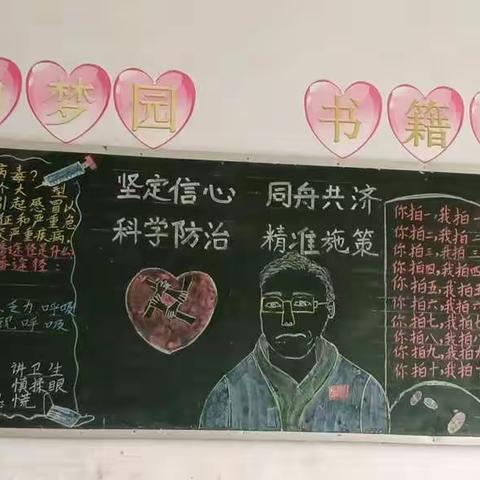 梦园
书籍
坚定信心 同舟共济
科学防治 精准施策
病毒?
个大型
引起感冒
征和严重急
严重疾病,
途径是什么
途径:
乏力 呼吸
呼吸
讲卫生
慎揉眼
慌
你拍一,我拍一
你拍二,我拍二
你拍三,我拍三
你拍四,我拍四
你拍五,我拍五
你拍六,我拍六
你拍七,我拍七
你拍八,我拍八
你拍九,我拍九
你拍十,我拍十